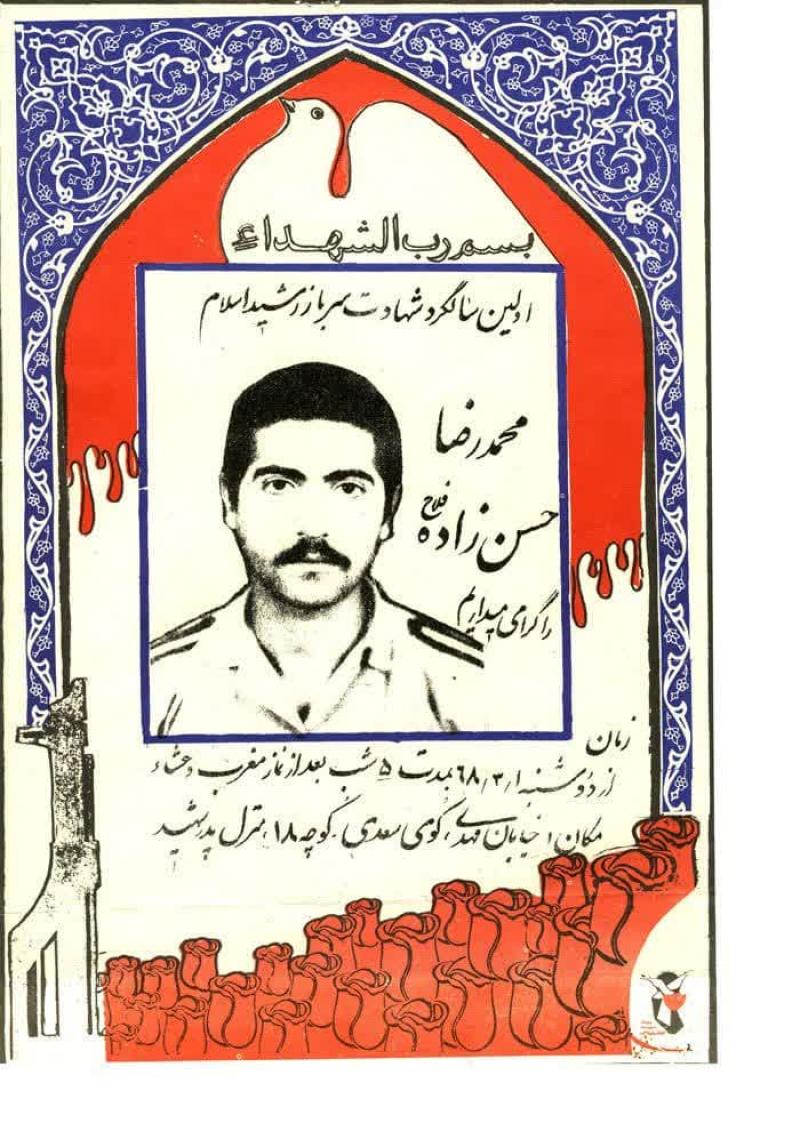 بسم رب الشهداء
اولین سالگرد شهادت سرباز رشید اسلام
محمد رضا
حسن زاده فلاح
را گرامی میداریم
زمان
از دوشنبه ۶۸٫۳٫۱ بمدت ۵ شب بعد از نماز مغرب و عشاء
مکان: خیابان مهدی، کوی سعدی، کوچه ۱۸، منزل پدر شهید